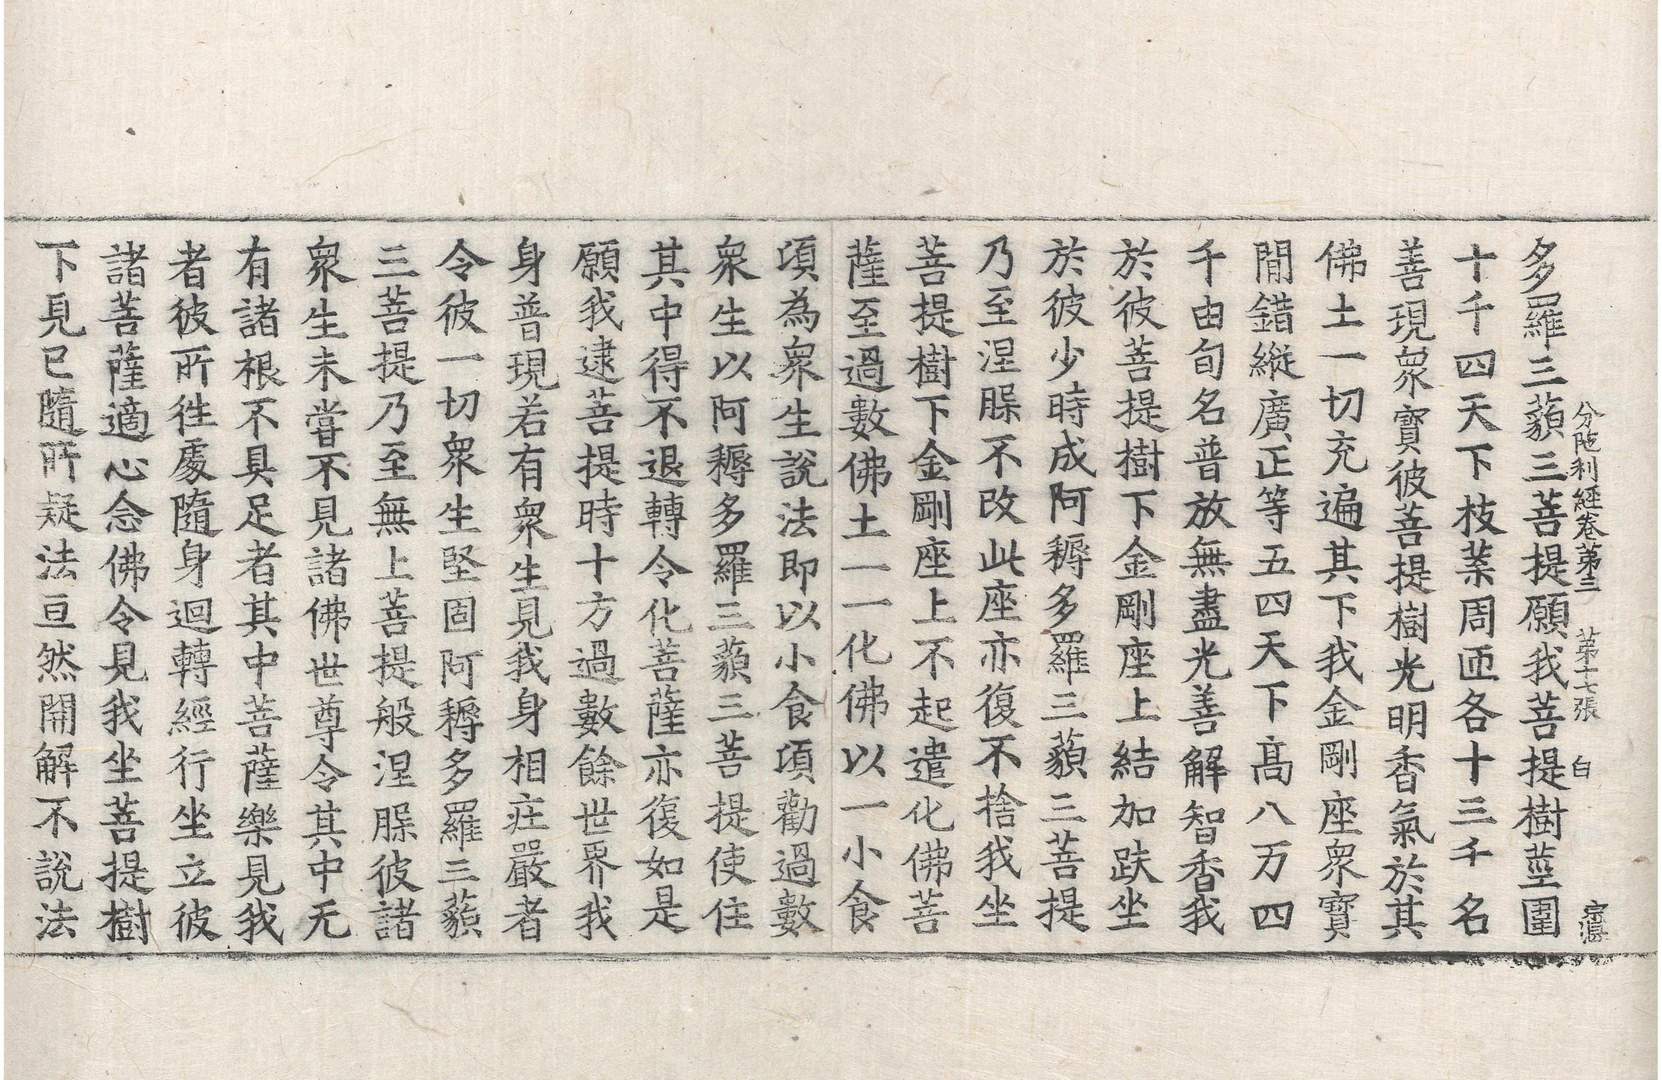 分陁利經卷第三　第十七張　白
多羅三藐三菩提願我菩提樹莖圍
十千四天下枝葉周匝各十三千名
善現衆寶彼菩提樹光明香氣於其
佛土一切充遍其下我金剛座衆寶
閒錯縱廣正等五四天下髙八万四
千由旬名普放無盡光善解智香我
於彼菩提樹下金剛座上結加趺坐
於彼少時成阿耨多羅三藐三菩提
乃至涅槃不改此座亦復不捨我坐
菩提樹下金剛座上不起遣化佛菩
薩至過數佛土一一化佛以一小食
頃為衆生說法即以小食頃勸過數
衆生以阿耨多羅三藐三菩提使住
其中得不退轉令化菩薩亦復如是
願我逮菩提時十方過數餘世界我
身普現若有衆生見我身相㽵嚴者
令彼一切衆生堅固阿耨多羅三藐
三菩提乃至無上菩提般涅槃彼諸
衆生未嘗不見諸佛世尊令其中无
有諸根不具足者其中菩薩樂見我
者彼所徃處隨身迴轉經行坐立彼
諸菩薩適心念佛令見我坐菩提樹
下見已隨所疑法亘然開解不說法